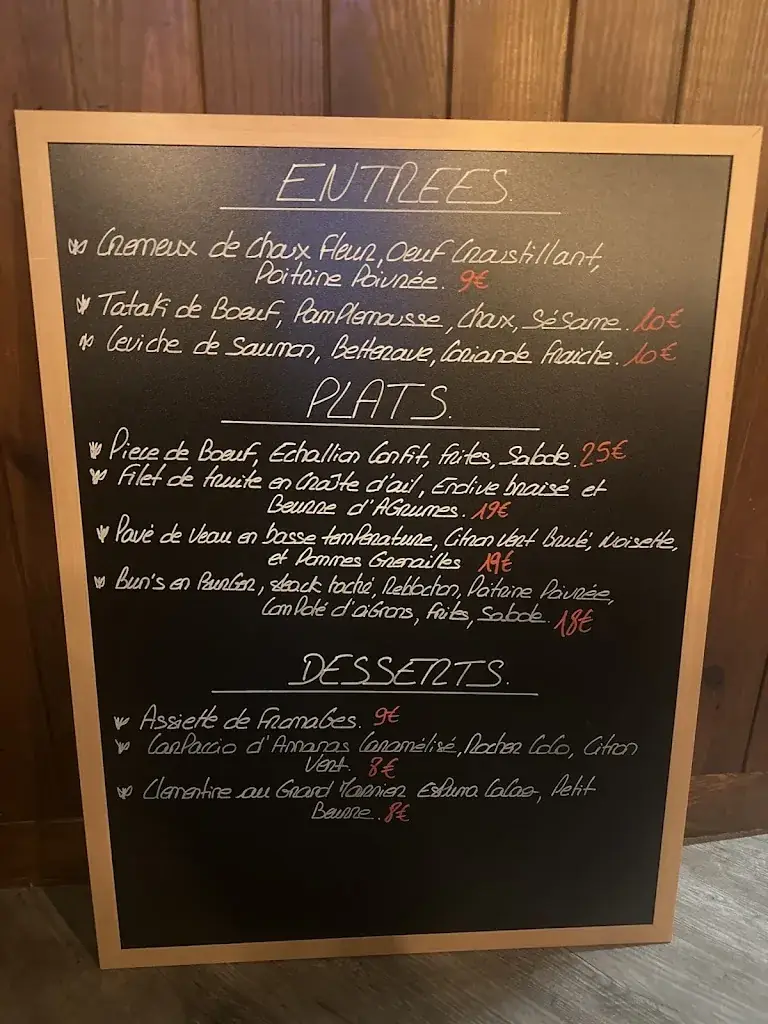 ENTREES.
Cremeux de Choux Fleur, Oeuf Croustillant,
Poitrine Poivrée. 9€
Tataki de Boeuf, Pamplemousse, Choux, Sésame. 10€
Ceviche de Saumon, Betterave, Coriande Fraiche. 10€
PLATS.
Piece de Boeuf, Echallion Confit, frites, Salade. 25€
Filet de truite en Croûte d'ail, Endive braisé et
Beurre d'Agrumes. 19€
Pavé de Veau en basse température, Citron Vert Brulé, Noisette,
et Pommes Grenailles 19€
Bun's en Burger, steack haché, Reblochon, Poitrine Poivrée,
Compoté d'oignons, frites, Salade. 18€
DESSERTS.
Assiette de Fromages. 9€
Carpaccio d'Annanas Caramélisé, Rocher CoCo, Citron
Vert. 8€
Clementine au Grand Marnier Espuma CaCao, Petit
Beurre. 8€